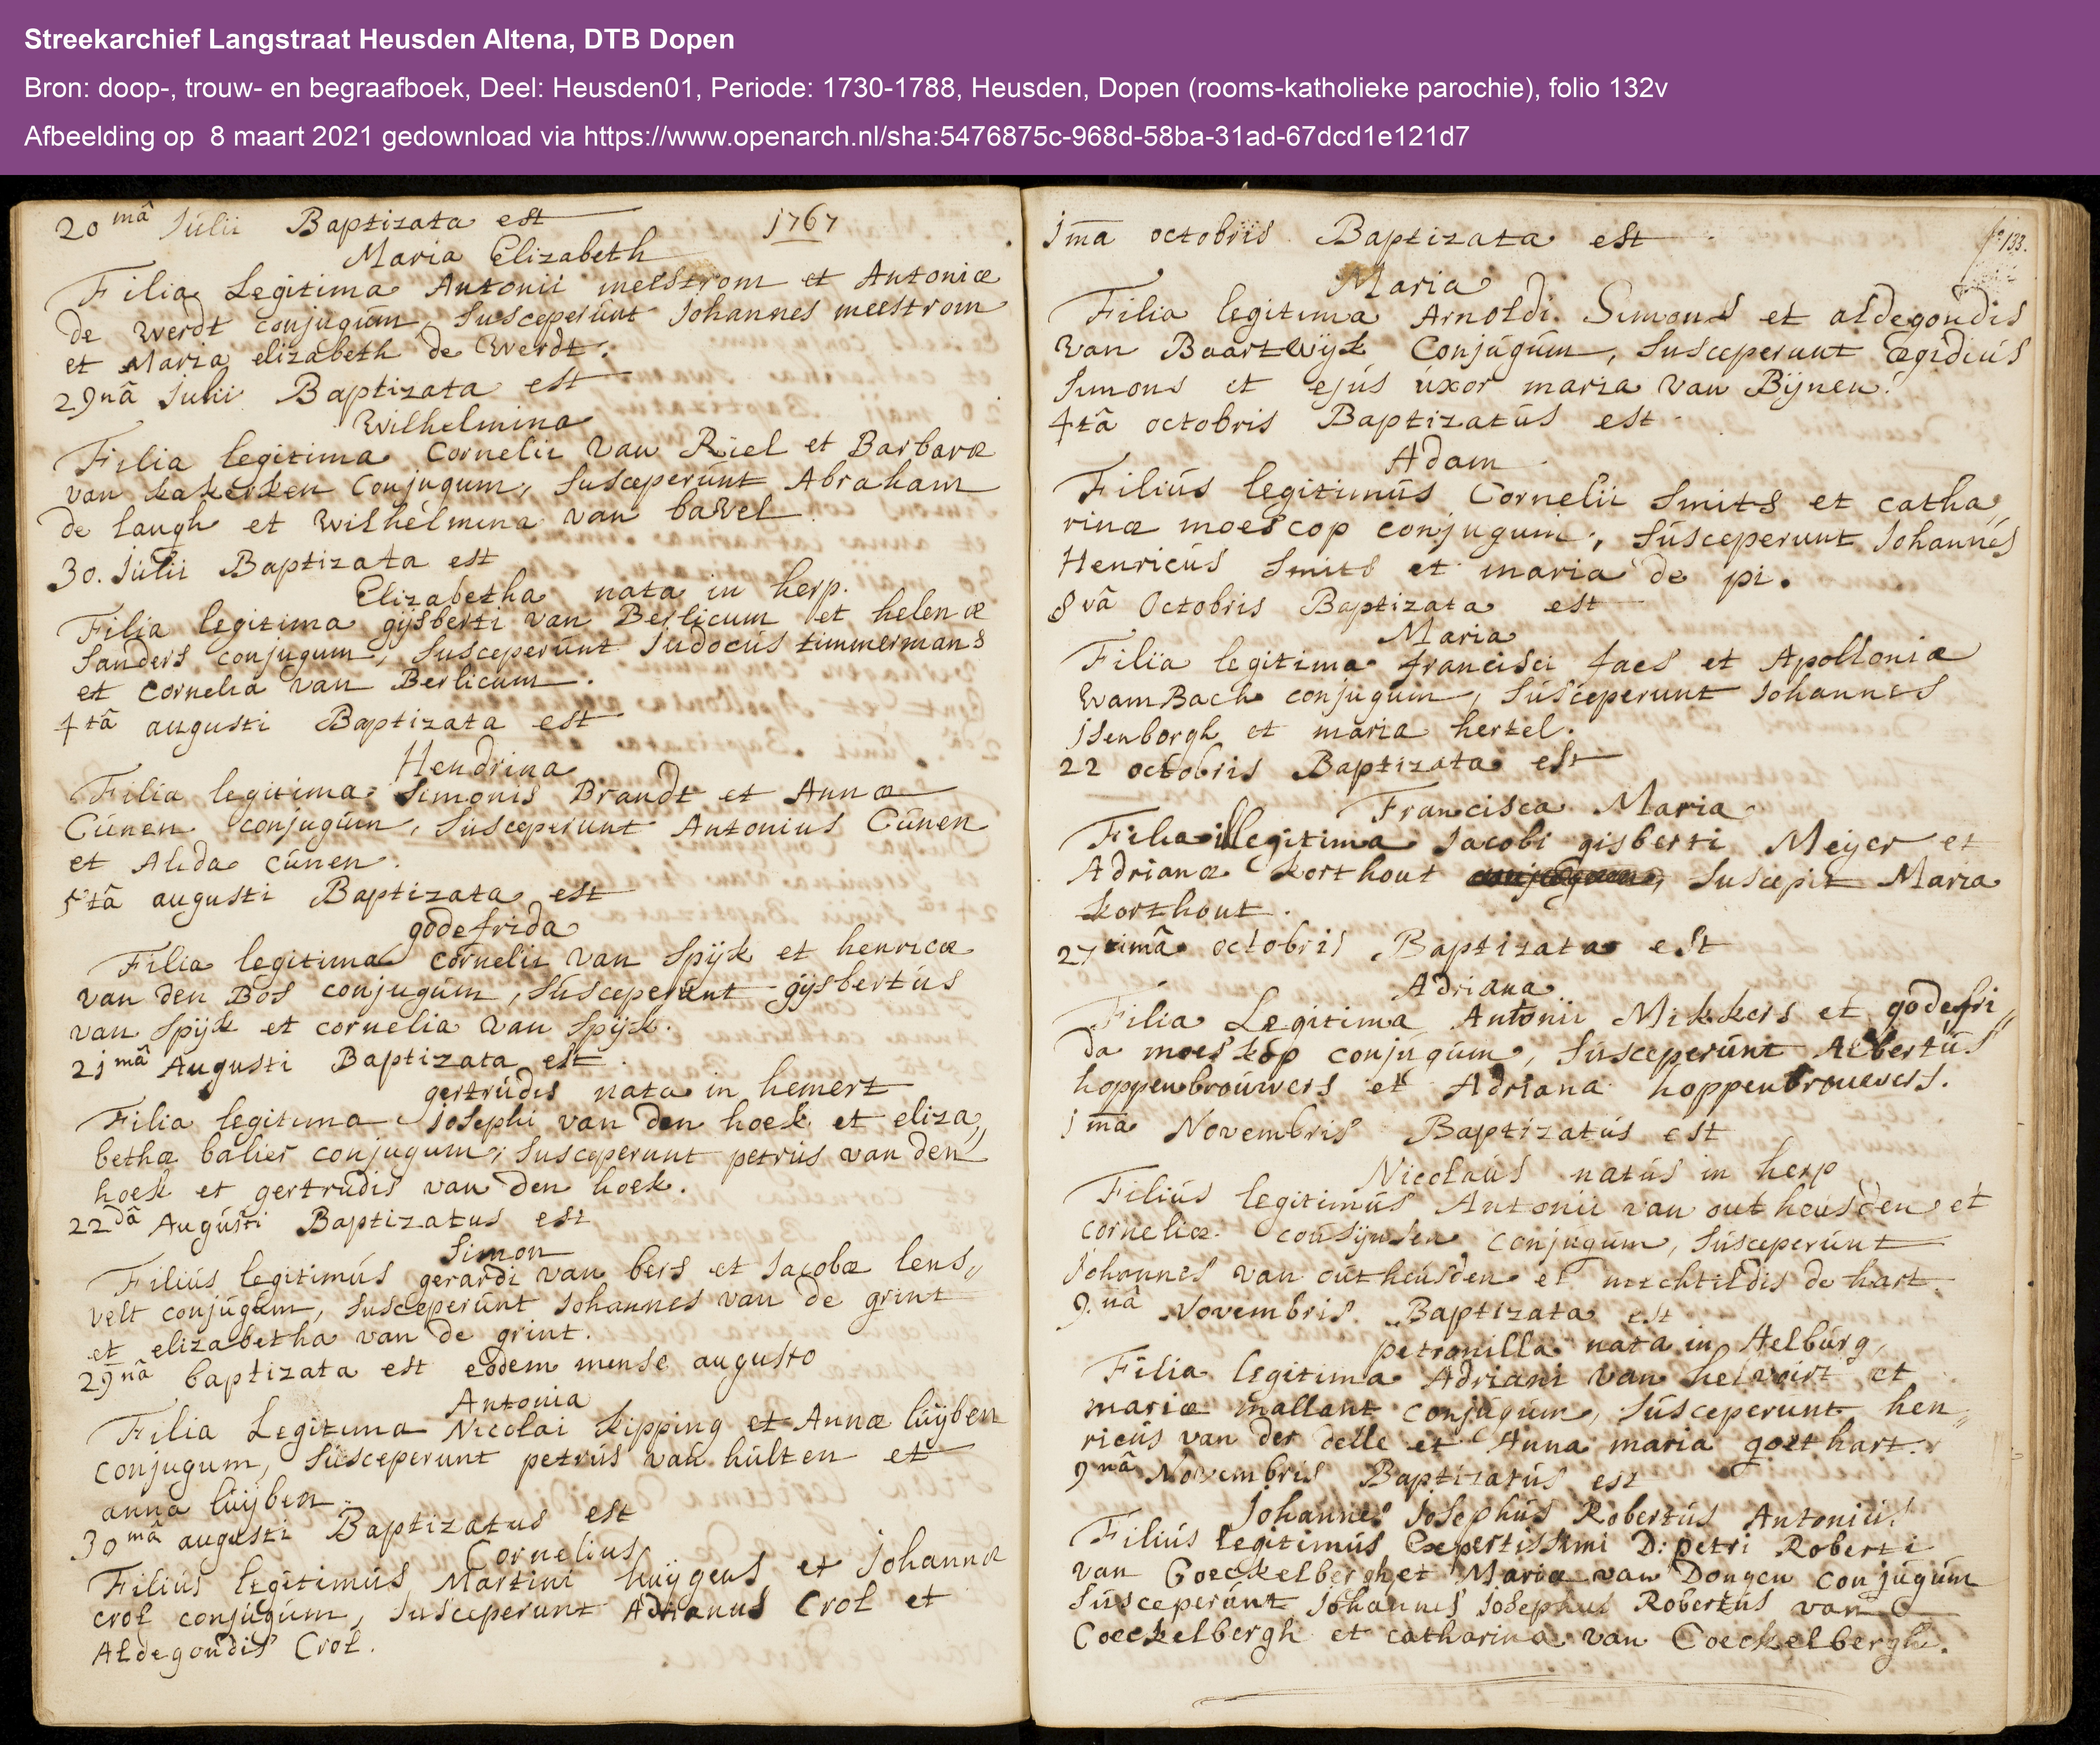 Streekarchief Langstraat Heusden Altena, DTB Dopen
Bron: doop-, trouw- en begraafboek, Deel: Heusden01, Periode: 1730-1788, Heusden, Dopen (rooms-katholieke parochie), folio 132v
Afbeelding op 8 maart 2021 gedownload via https://www.openarch.nl/sha:5476875c-968d-58ba-31ad-67dcd1e121d7
20mâ Julii Baptizata est 1767
Maria Elizabeth
Filia Legitima Antonii meestrom et Antoniæ
de Werdt conjugum, Susceperunt Johannes meestrom
et Maria elizabeth de Werdt.
29nâ Julii Baptizata est
Wilhelmina
Filia legitima Cornelii van Riel et Barbaræ
van kakerken Conjugum, Susceperunt Abraham
de laugh et Wilhelmina van bavel
30. Julii Baptizata est
Elizabetha nata in herp.
Filia legitima gijsberti van Berlicum et helenæ
Sanders conjugum, Susceperunt Judocus timmermans
et Cornelia van Berlicum.
4tâ augusti Baptizata est
Hendrina
Filia legitima Simonis Brandt et Annæ
Cunen conjugum, Susceperunt Antonius Cunen
et Alida cunen.
5tâ augusti Baptizata est
godefrida
Filia legitima Cornelii van Spijk et henricæ
van den Bos conjugum, Susceperunt gijsbertus
van Spijk et cornelia van Spijk.
21mâ Augusti Baptizata est.
gertrudis nata in hemert
Filia legitima josephi van den hoek et eliza,,
bethæ balier conjugum, Susceperunt petrus van den
hoek et gertrudis van den hoek.
22dâ Augusti Baptizatus est
Simon
Filius legitimus gerardi van bers et Jacobæ lens,,
velt conjugum, Susceperunt Johannes van de grint
et elizabetha van de grint.
29nâ baptizata est eodem mense augusto
Antonia
Filia Legitima Nicolai kipping et Annæ luijben
conjugum, Susceperunt petrus van hulten et
anna luijben.
30mâ augusti Baptizatus est
Cornelius
Filius legitimus Martini huijgens et Johannæ
crol conjugum, Susceperunt Adrianus Crol et
Aldegondis Crol.
1ma octobris Baptizata est fo 133.
Maria
Filia legitima Arnoldi Simons et aldegondis
van Baartwijk Conjugum, Susceperunt ægidius
Simons et ejus uxor maria van Bijnen.
4tâ octobris Baptizatus est
Adam
Filius legitimus Cornelii Smits et catha,,
rinæ moescop conjugum, Susceperunt Johannes
Henricus Smits et maria de pi.
8vâ Octobris Baptizata est
Maria
Filia legitima francisci faes et Apolloniæ
WamBach conjugum, Susceperunt Johannes
jsenborgh et maria hertel.
22 octobris Baptizata est
Francisca Maria
Filia illegitima Jacobi gisberti Meijer et
Adrianæ korthout conjugum, Suscepit Maria
korthout.
27timâ octobris Baptizata est
Adriana
Filia Legitima Antonii Mikkers et godefri,,
da moeskop conjugum, Susceperunt Albertus
hoppenbrouwers et Adriana hoppenbrouwers.
1ma Novembris Baptizatus est
Nicolaus natus in herp
Filius legitimus Antonii van out heusden et
corneliæ cousijnsen conjugum, Susceperunt
Johannes van outheusden et mechtildis de hart.
9.nâ Novembris Baptizata est
petronilla nata in Aelburg,
Filia legitima Adriani van helvoirt et
mariæ mallant conjugum, Susceperunt hen,,
ricus van der delle et Anna maria goethart.
9nâ Novembris Baptizatus est
Johannes Josephus Robertus Antonius
Filius legitimus Expertissimi D: petri Roberti
van Coeckelbergh et Mariæ van Dongen conjugum
Susceperunt Johannes Josephus Robertus van
Coeckelbergh et catharina van Coeckelbergh.